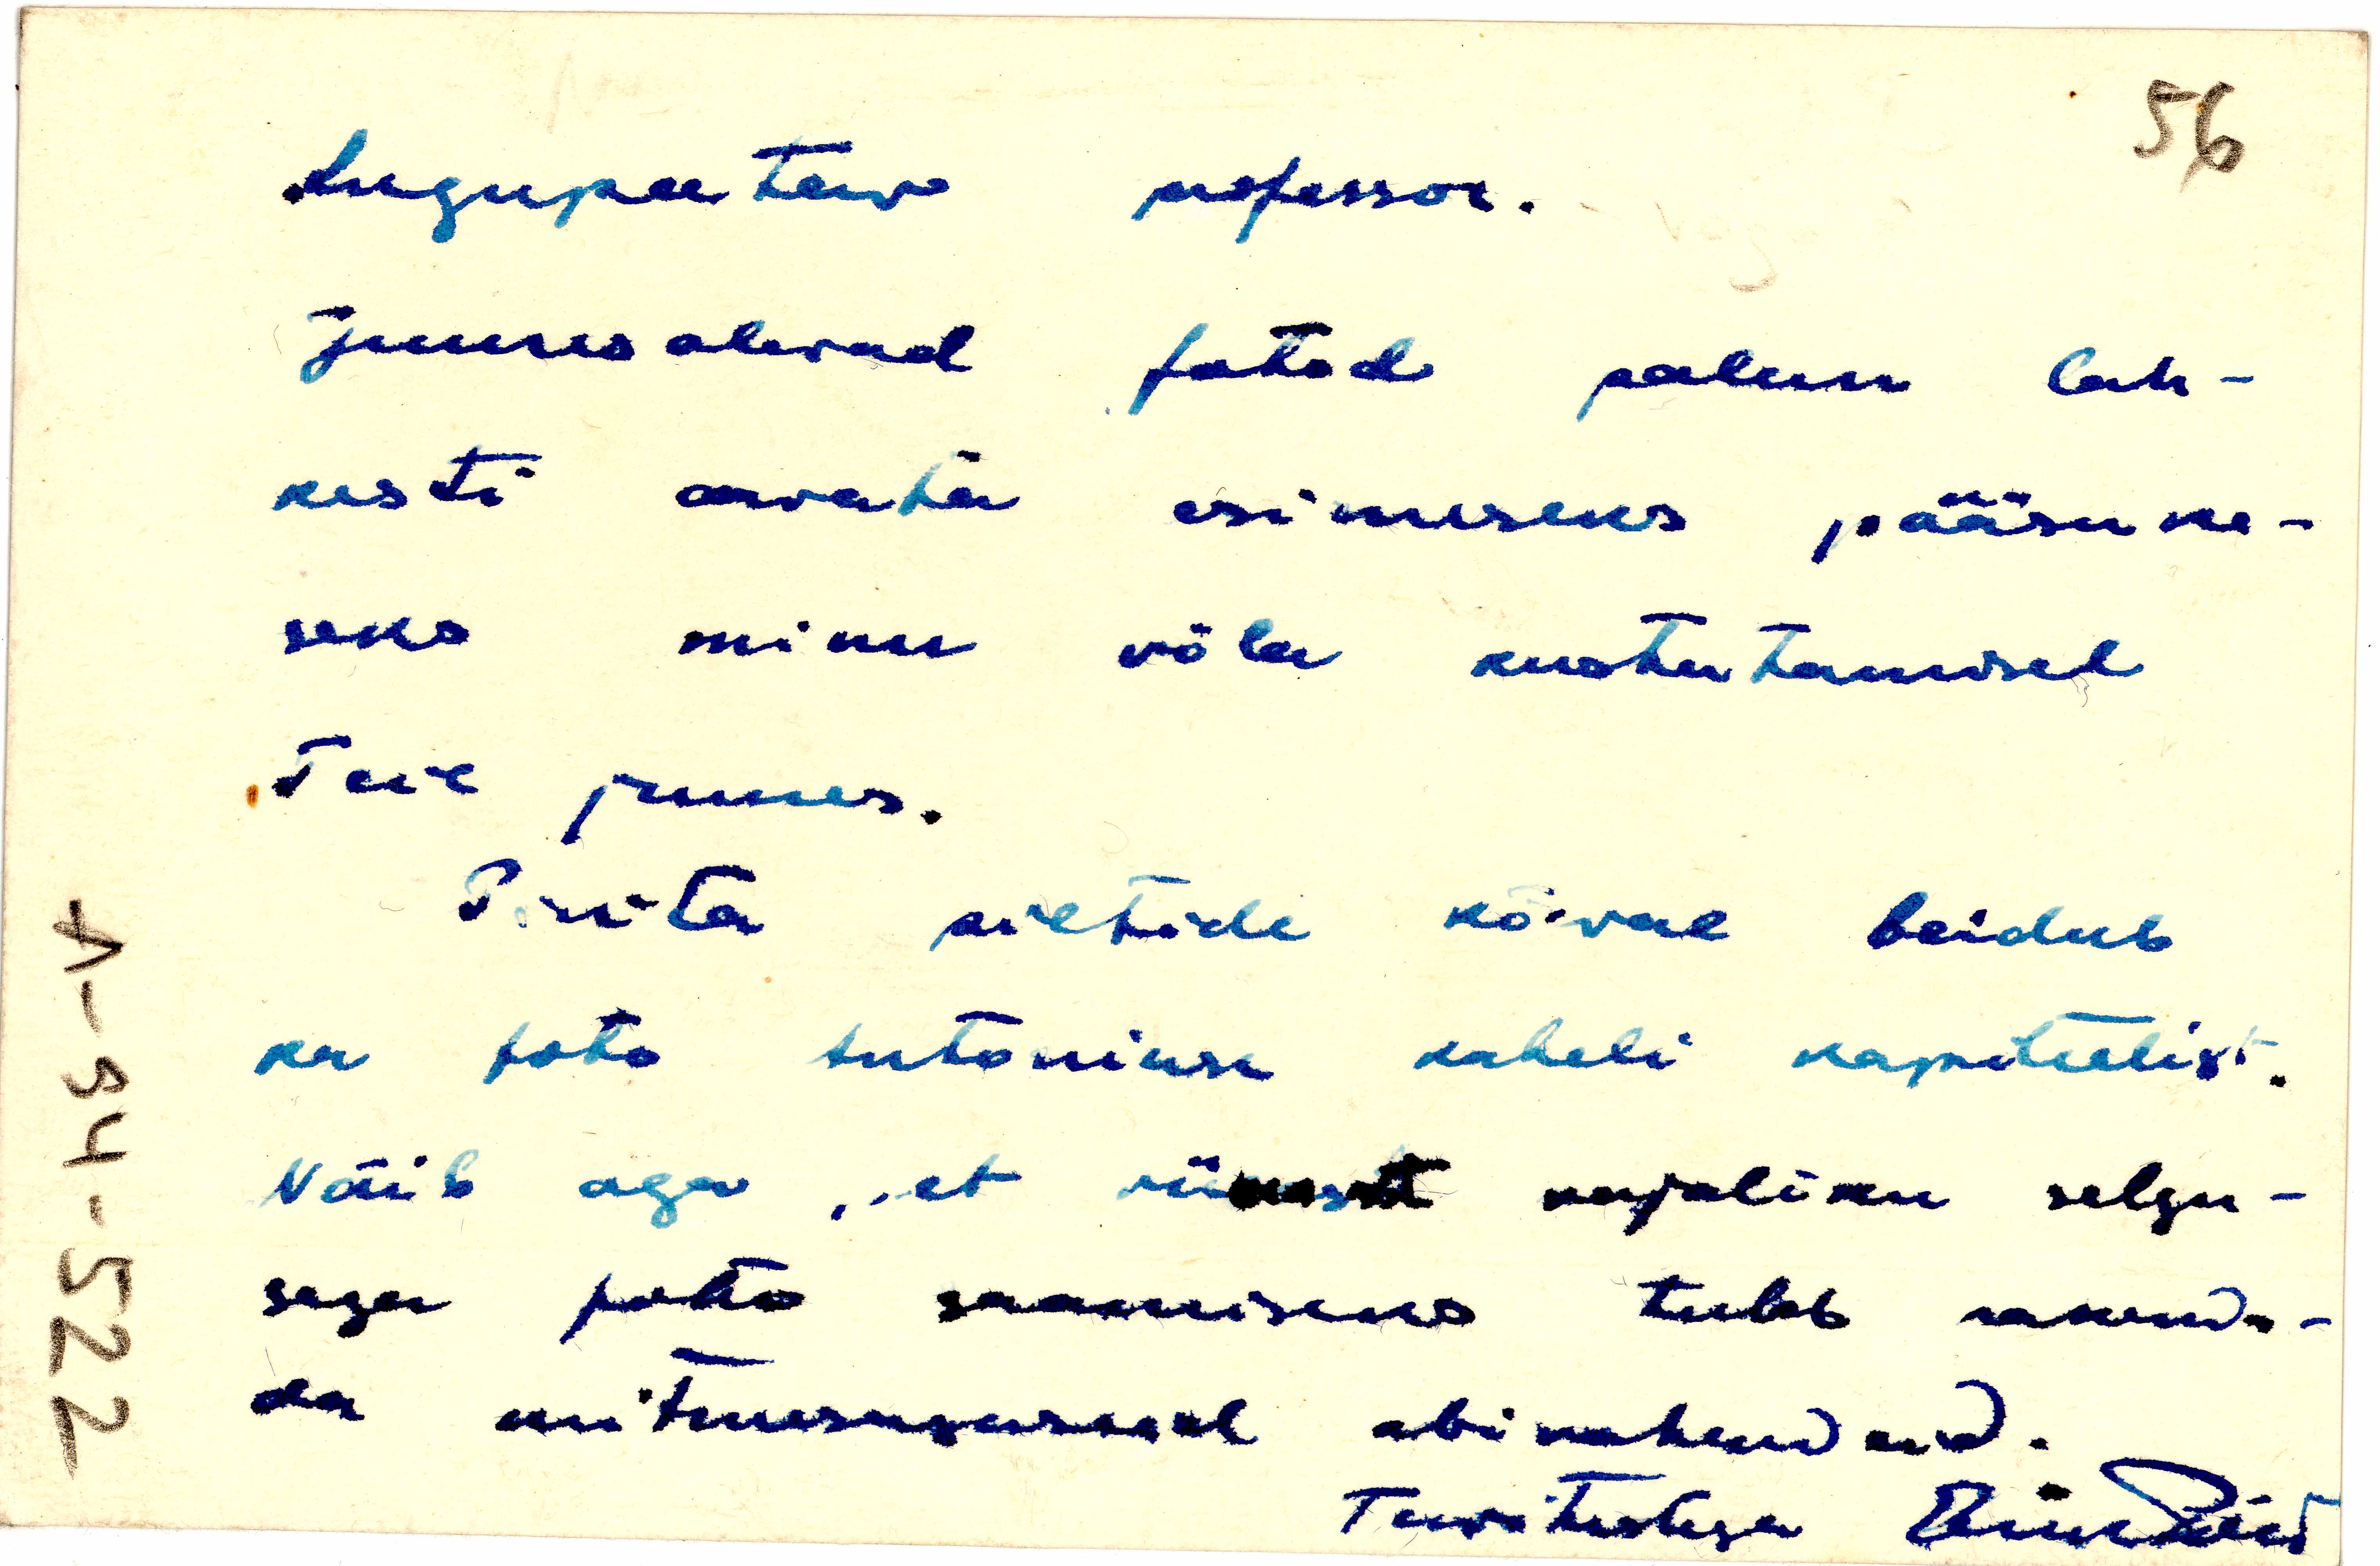 56
Lugupeetav professor.
Juuresolevad fotod palun lah-
kesti arvata esimeseks pääsuke-
seks minu võla kustutamisel
Teie juures.
Pirita piltide kõrval leidub
ka foto Antoniuse kabeli kapiteelist.
Näib aga, et vajaliku selgu-
sega foto saamiseks tuleb rakenda-
da mitmesuguseid abivahendeid.
Tervitustega
A-94-522